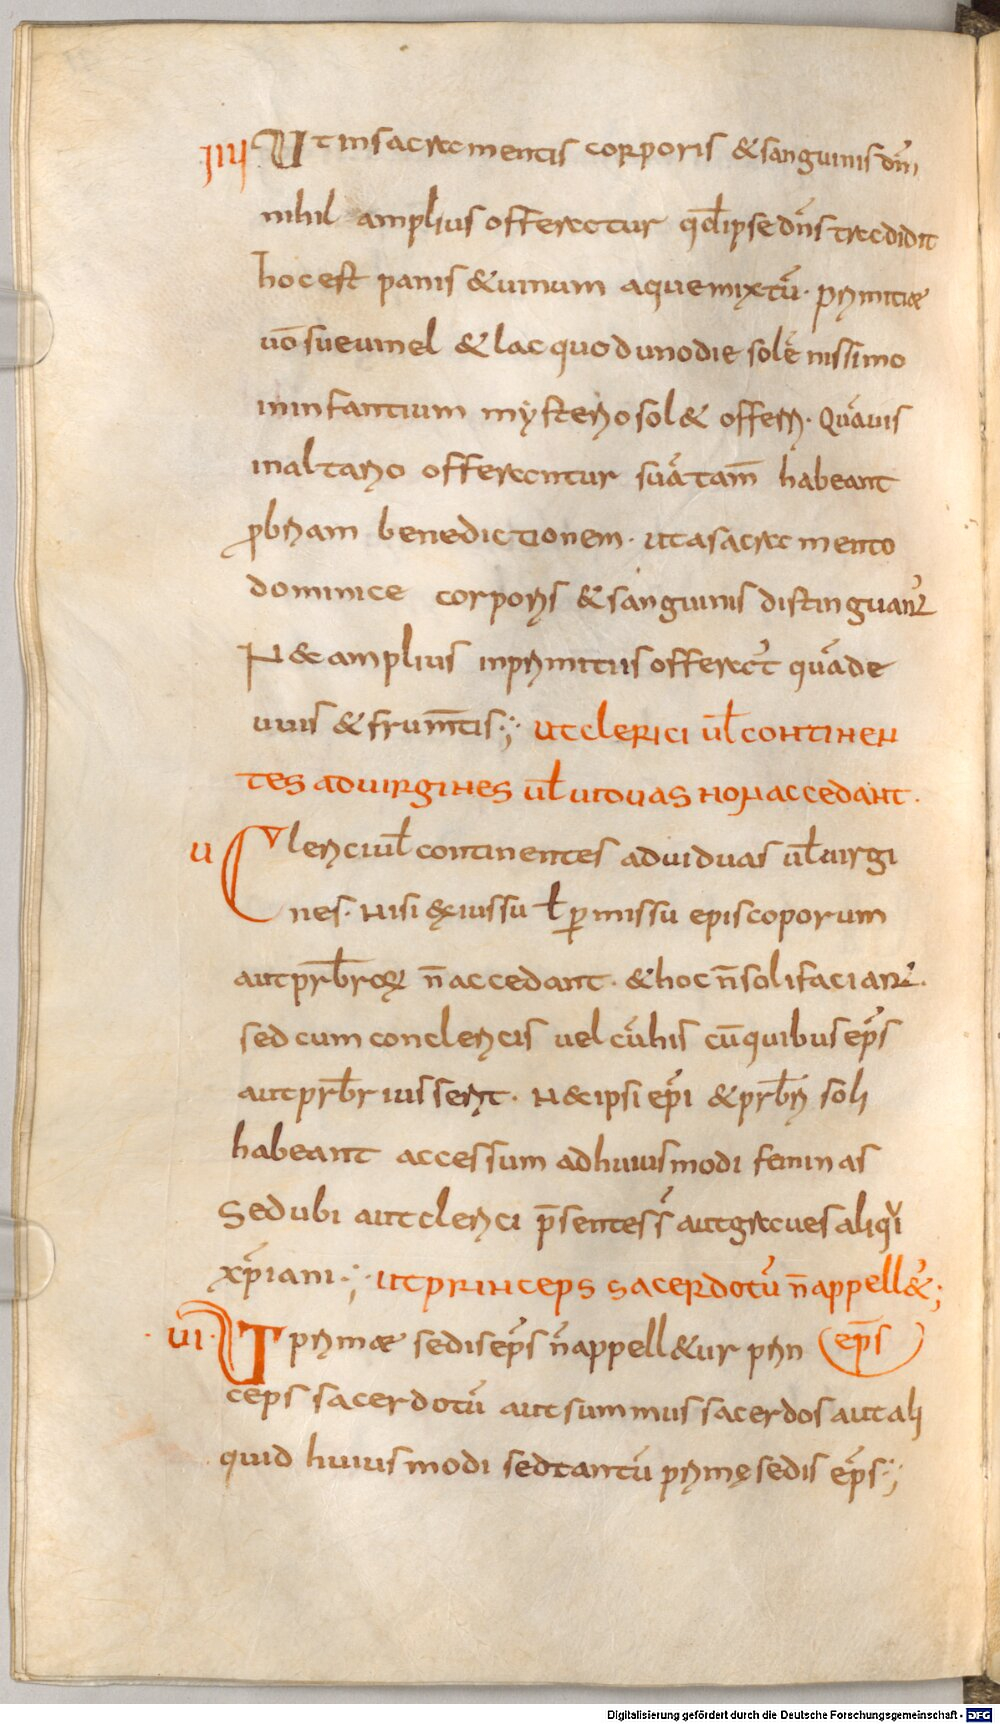 IIII Ut in sacramentis corporis & sanguinis dn̄i
nihil amplius offeratur qd̄ ipse dn̄s tradidit
hoc est panis & uinum aque mixtū. primitiæ
uō sue uel mel & lac quod uno die solēnissimo
in infantium mysterio sol& offerri. Quāuis
in altario offerantur suā tam̄ habeant
p̄briam benedictionem. ut a sacramento
dominice corporis & sanguinis distinguant᷒
N& amplius in primitiis offerat᷒ quā de
uuis & frum̄tis·; ut clerici ul̄ continen
tes ad uirgines ul̄ uiduas non accedant.
U Clerici ul̄ continentes ad uiduas ul̄ uirgi
nes. nisi ex iussu ł p̱missu episcoporum
aut prb̄roꝝ n̄ accedant. & hoc n̄ soli faciant᷒.
sed cum conclericis uel cū his cū quibus ep̄s
aut prb̄r iusserit. n& ipsi ep̄i & prb̄ri soli
habeant accessum ad huiusmodi feminas
Sed ubi aut clerici p̄sentes s̄ aut graues aliqi
xp̄iani·; ut princeps sacerdotū n̄ appell&᷒;
UI. Ut primæ sedis ep̄s n̄ appell&ur prin ep̄s
ceps sacerdotū aut summus sacerdos aut ali
quid huiusmodi sed tantū primę sedis ep̄s·;
Digitalisierung gefördert durch die Deutsche Forschungsgemeinschaft - DFG